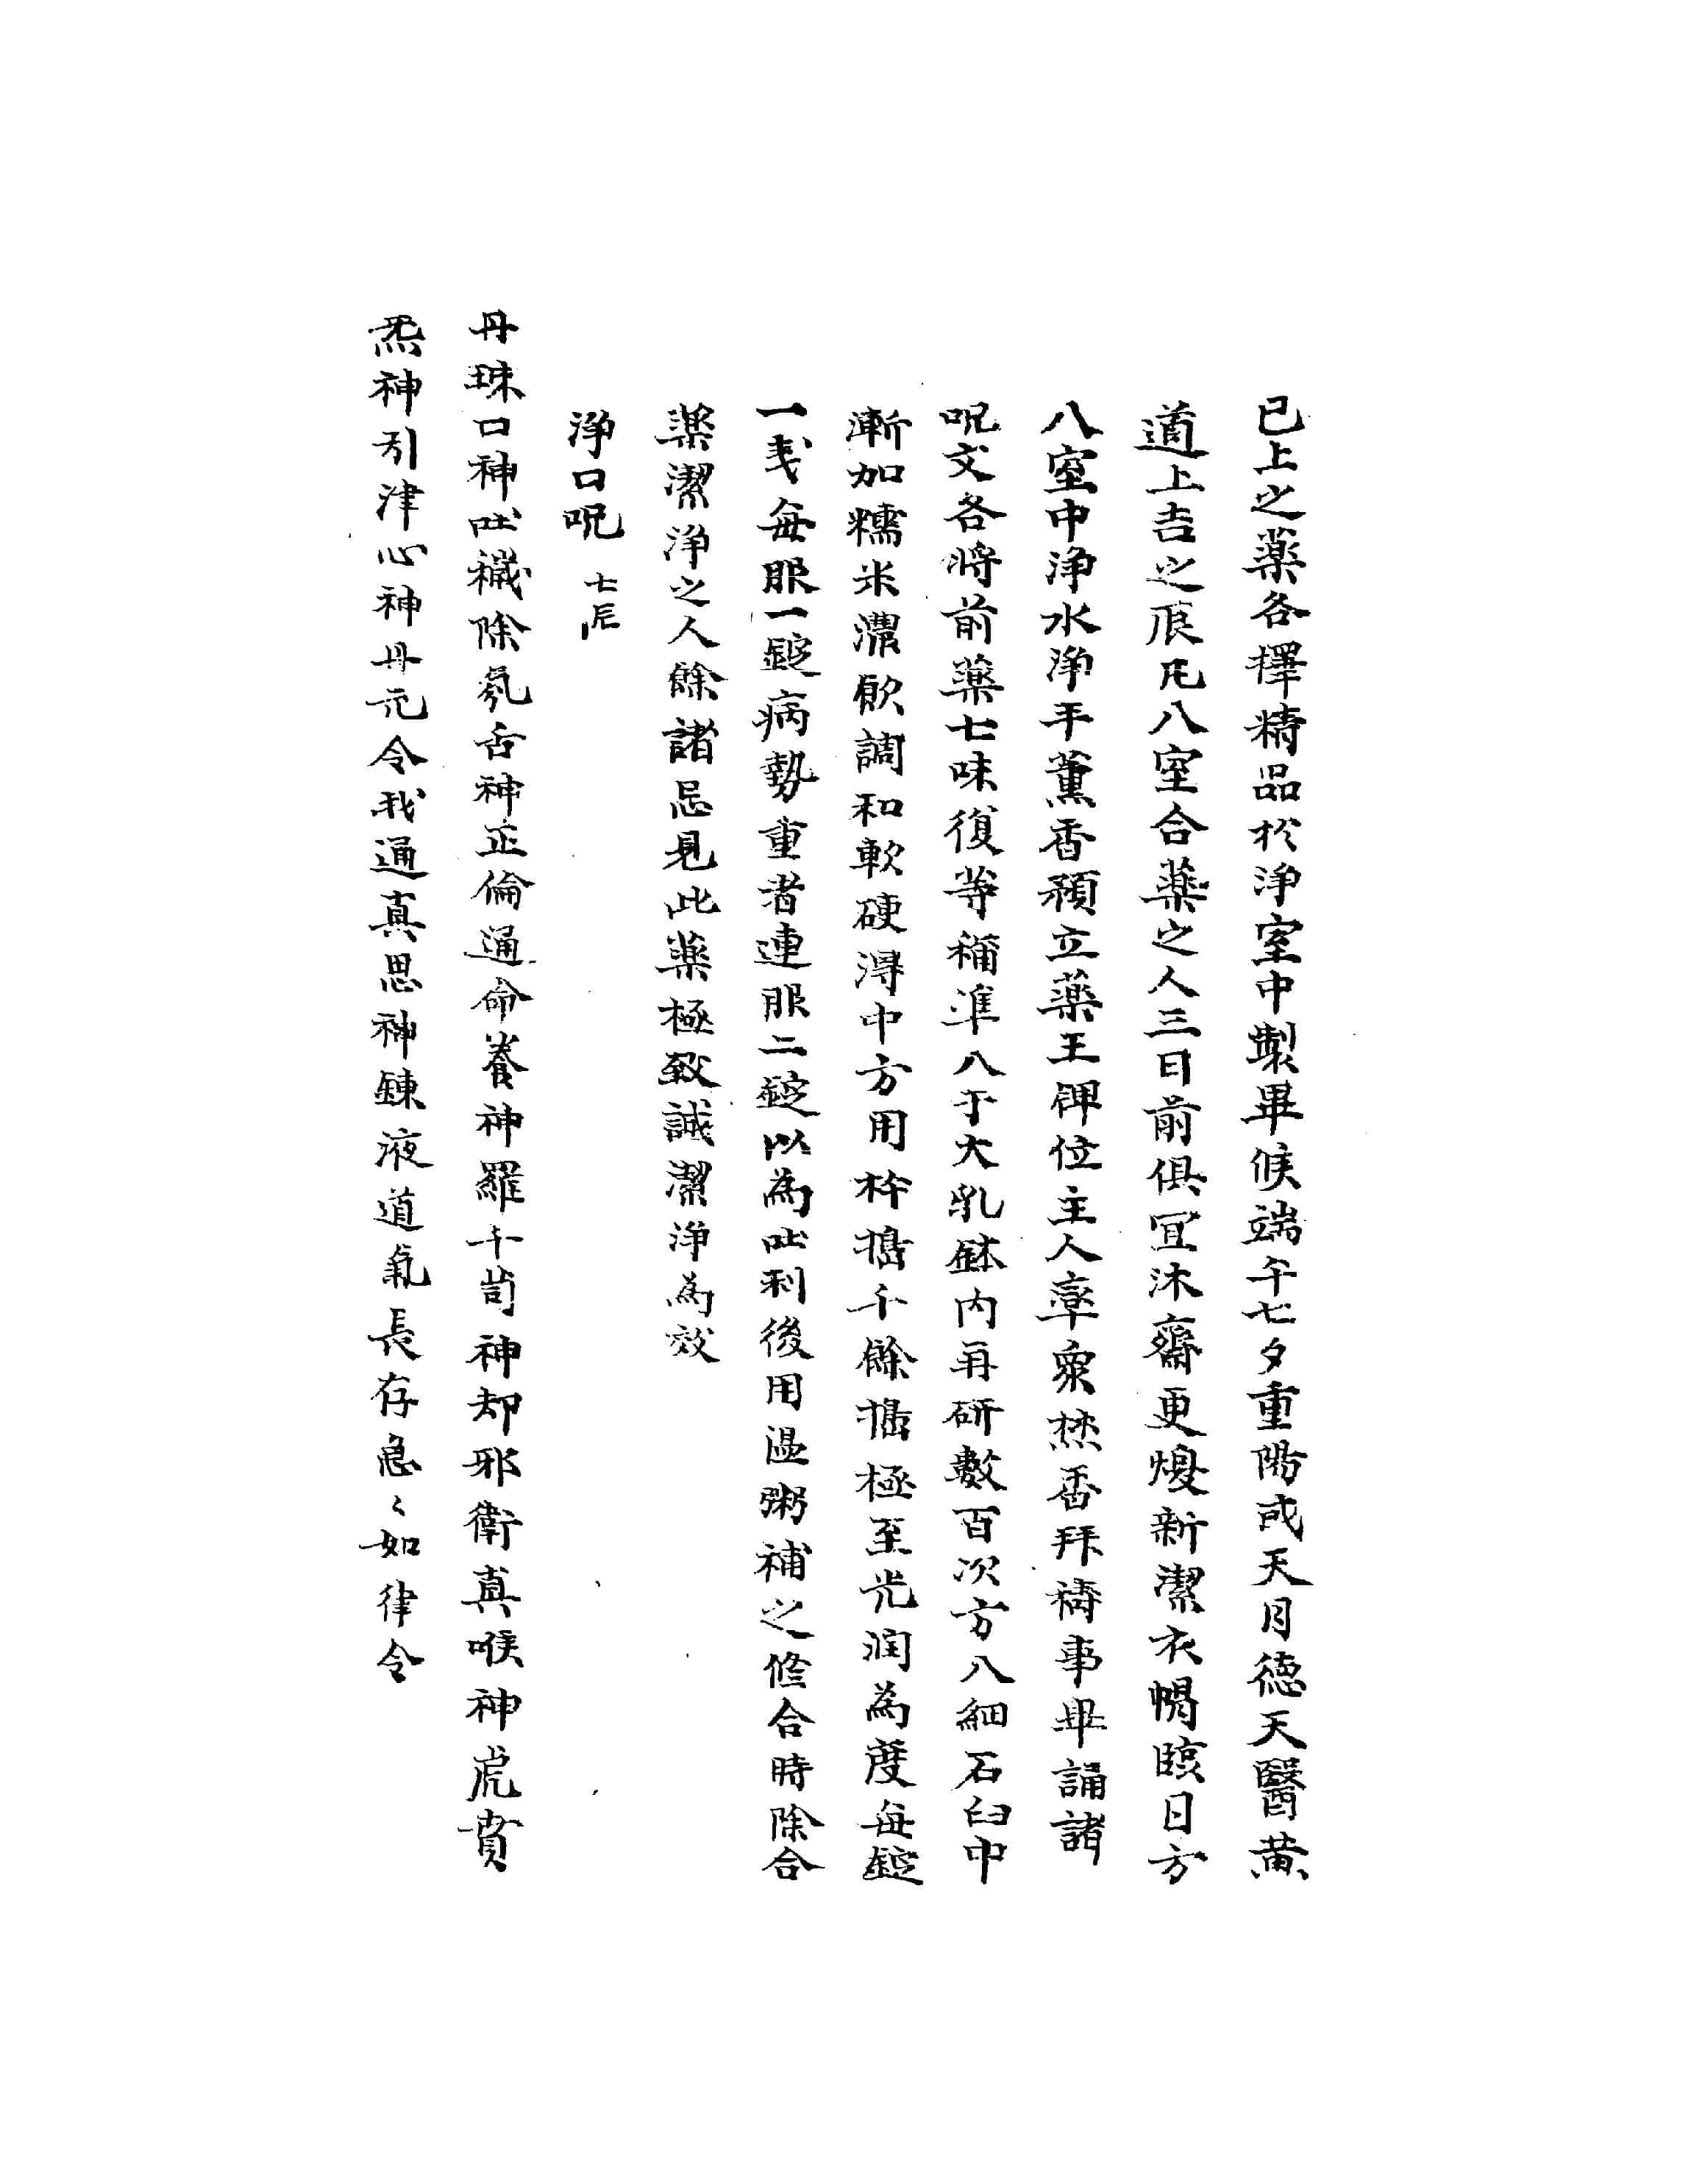 已上之薬各擇精品於浄室中製畢候端午七夕重陽或天月徳天醫黄
道上吉之辰凡入室合薬之人三日前俱宜沐齋更煖新潔衣幬臨日方
入室中浄水浄手薫香預立薬王牌位主人率衆焚香拜禱事畢誦諸
呪文各將前薬七味復等稱準入于大乳鉢内再研數百次方入細石臼中
漸加糯米濃飲調和軟硬得中方用杵搗千餘搗極至光潤為度每錠
一戔每服一錠病勢重者連服二錠以為吐利後用温粥補之修合時除合
薬潔浄之人餘諸忌見此薬極致誠潔浄為效
浄口呪
丹珠口神吐穢除氛舌神正倫通命養神羅千茼神却邪衛真喉神虎賁
炁神引津心神丹元令我通真思神錬液道氣長存急〻如律令